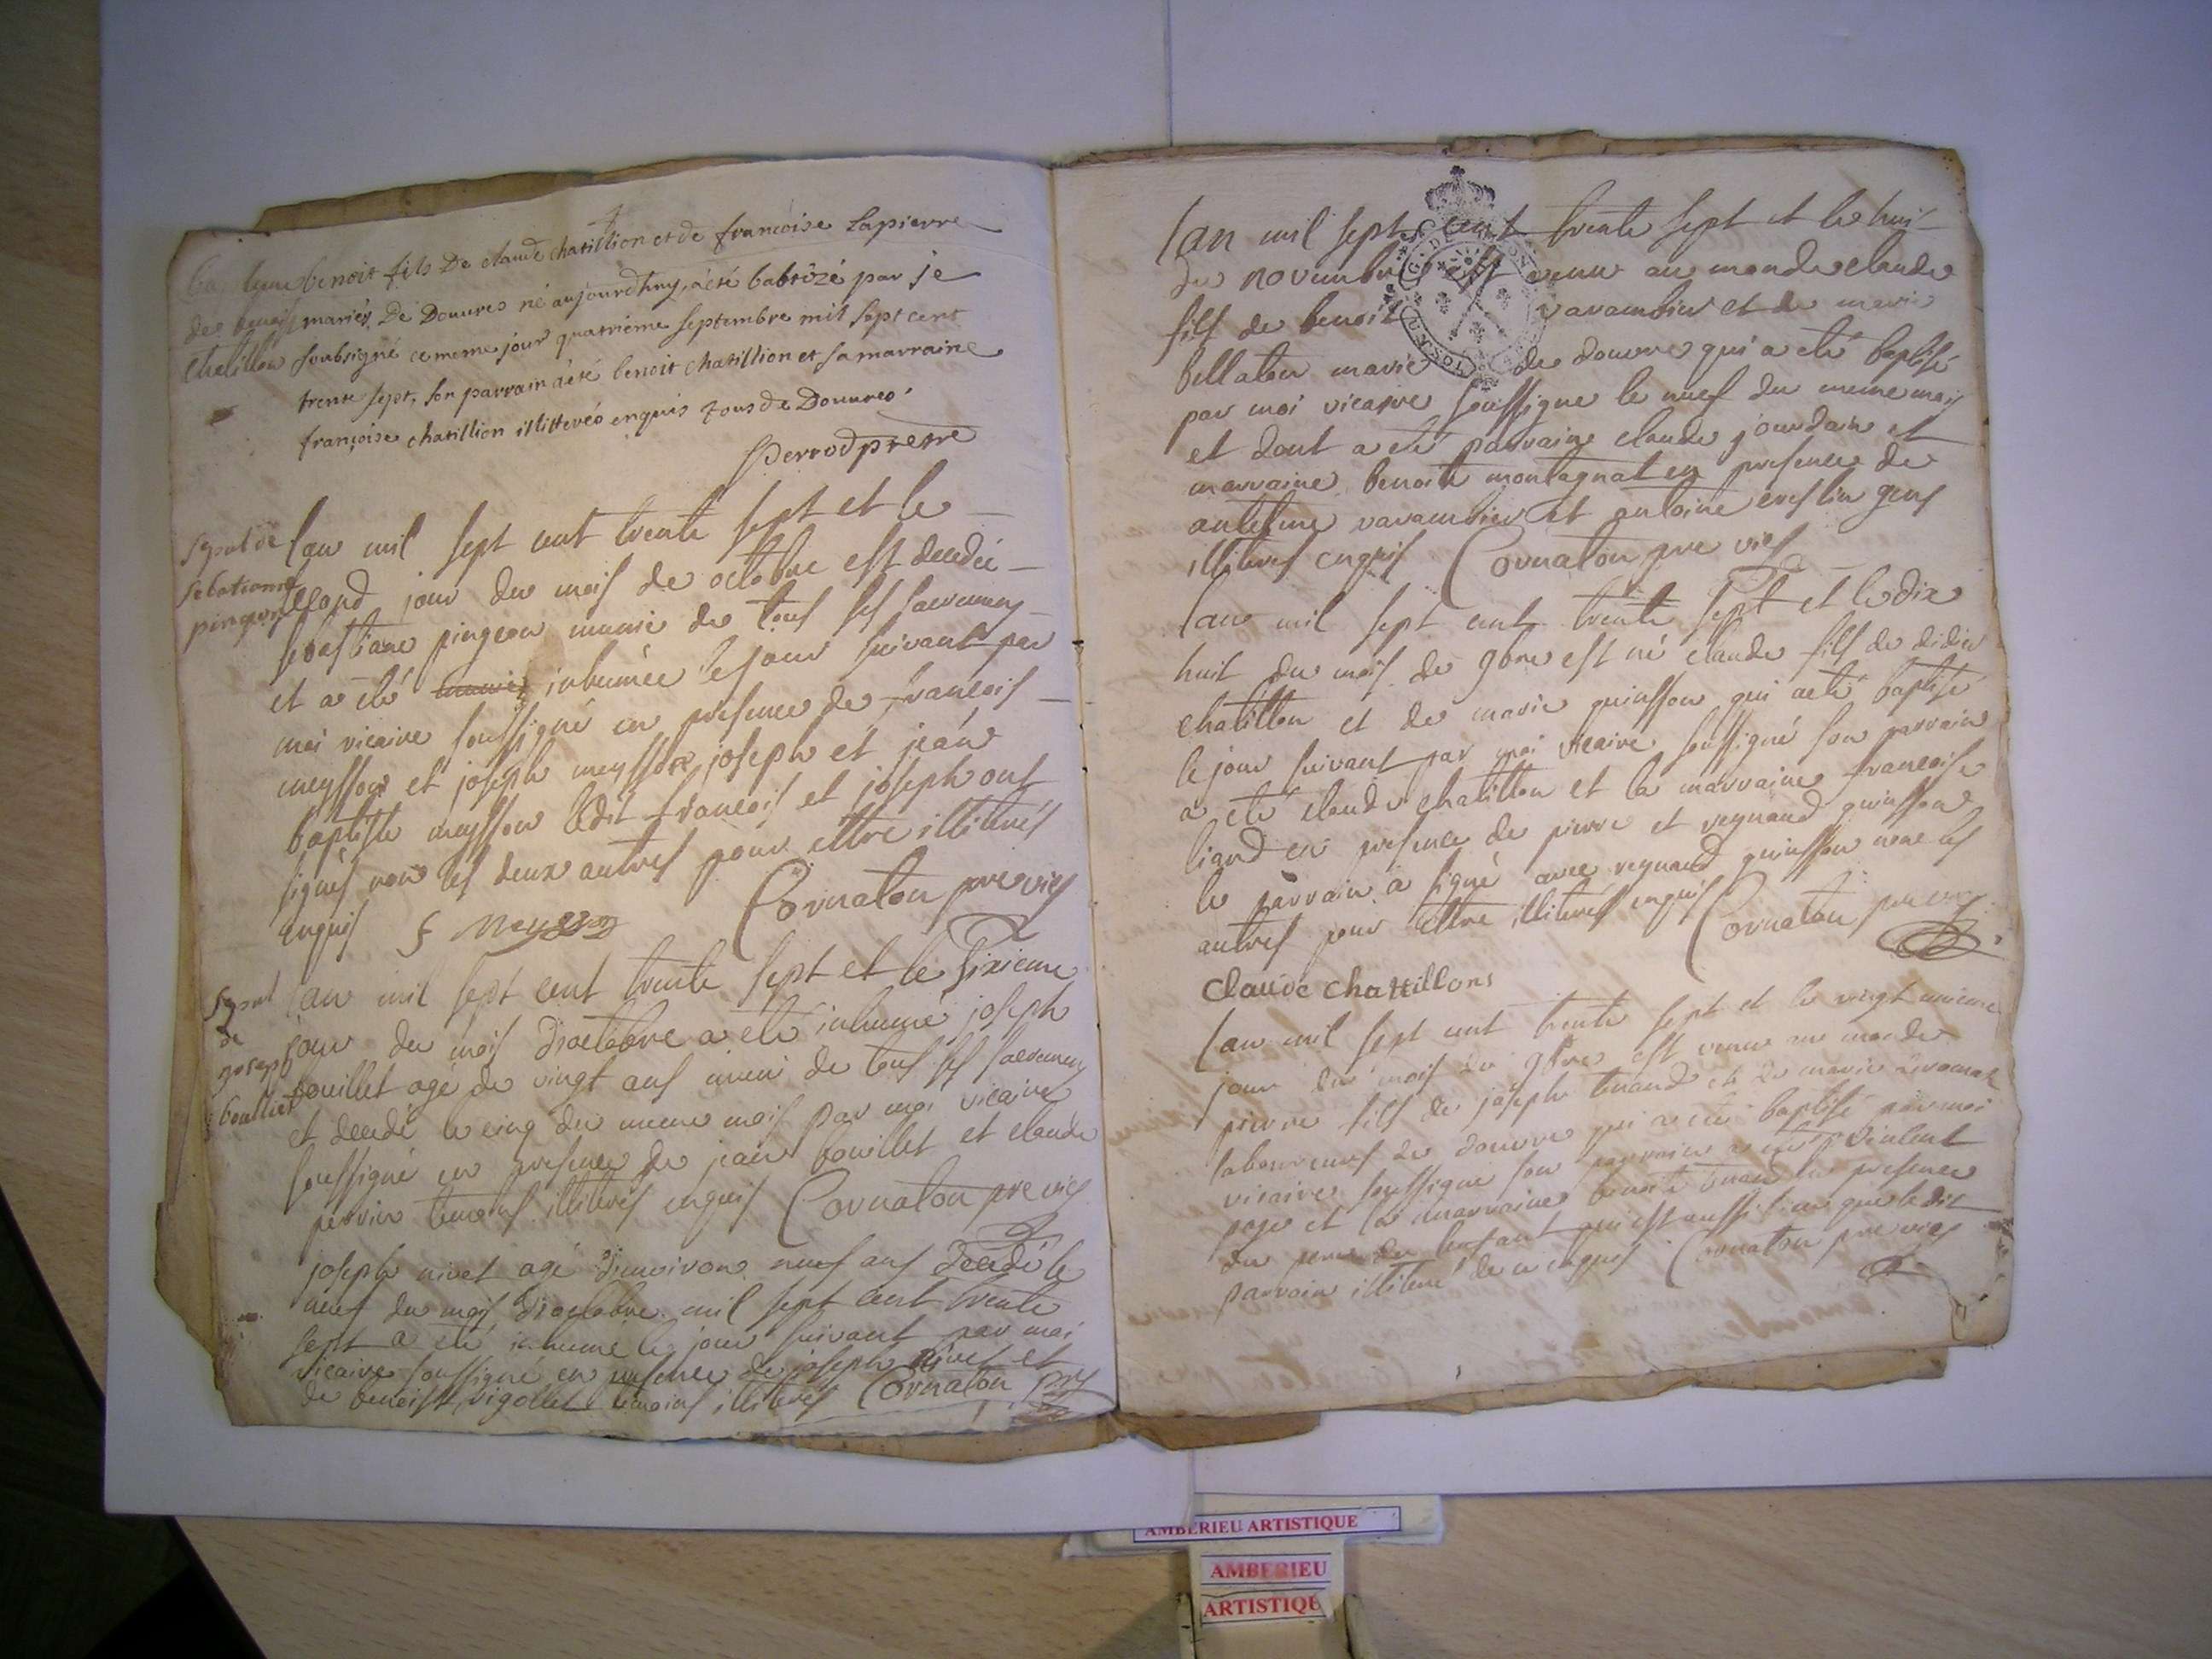 benoit fils De claude chatillion et de françoise Lapierre
mariéz De Douures né aujourdhuy, a été babtizé par je
soubsigné ce meme jour quatriéme septembre mil sept cent
trente sept, son parrain a été benoit chatillion et sa marraine
françoise chatillion illitterés enquis tous de Douures.
Perrod pretre
des benoist
chatillon
sepul de
sebatiane
pingeon
lan mil sept cent trente sept et le
second jour du mois de octobre est decedée
sebastiane pingeon munie de tous ses sacremens
et a eté inhumée le jour suivant par
moi vicaire soussigné en presence de francois
meysson et joseph meysson joseph et jean
baptiste meysson ledit francois et joseph ont
signés non les deux autres pour ettre illiterés
enquis f Meysson Cornaton pre vic
sepul
de
joseph
bouillet
lan mil sept cent trente sept et le sixieme
jour du mois d'octobre a eté inhumé joseph
bouillet agé de vingt ans muni de tous ses sacremens
et decedé le cinq du meme mois par moi vicaire
soussigné en presence de jean bouillet et claude
perrin temoins illiterés enquis Cornaton pre vic
joseph nivet agé d'environ neuf ans decedé le
neuf du mois d'octobre mil sept cent trente
sept a eté inhumé le jour suivant par moi
vicaire soussigné en presence de joseph nivet et
de benoist vigollet temoins illiterés Cornaton
lan mil sept cent trente sept et le huit
du novembre est venu au monde claude
fils de benoit varambier et de marie
bellaton mariés de douvres qui a eté baptisé
par moi vicaire soussigné le neuf du meme mois
et dont a eté parrain claude jourdain et
marraine benoite montagnat en presence de
antelme varambier et antoine gens
illiterés enquis Cornaton pre vic
lan mil sept cent trente sept et le dix
huit du mois de 9bre est né claude fils de didier
chatillon et de marie quinsson qui a eté baptisé
le jour suivant par moi vicaire soussigné son parrain
a eté claude chatillon et la marraine francoise
liand en presence de pierre et reynaud quinsson
le parrain a signé avec reynaud quinsson non les
autres pour ettre illiterés enquis Cornaton pre vic
Claude chattillons
lan mil sept cent trente sept et le vingt unieme
jour du mois de 9bre est venu au monde
pierre fils de joseph tenand et de marie
laboureurs de douvres qui a eté baptisé par moi
vicaire soussigné son parrain a eté
page et la marraine benoite tenand en presence
du pere de lenfant qui est aussi bien que ledit
parrain illiteré de ce enquis Cornaton pre vic
AMBERIEU ARTISTIQUE
AMBERIEU
ARTISTIQUE